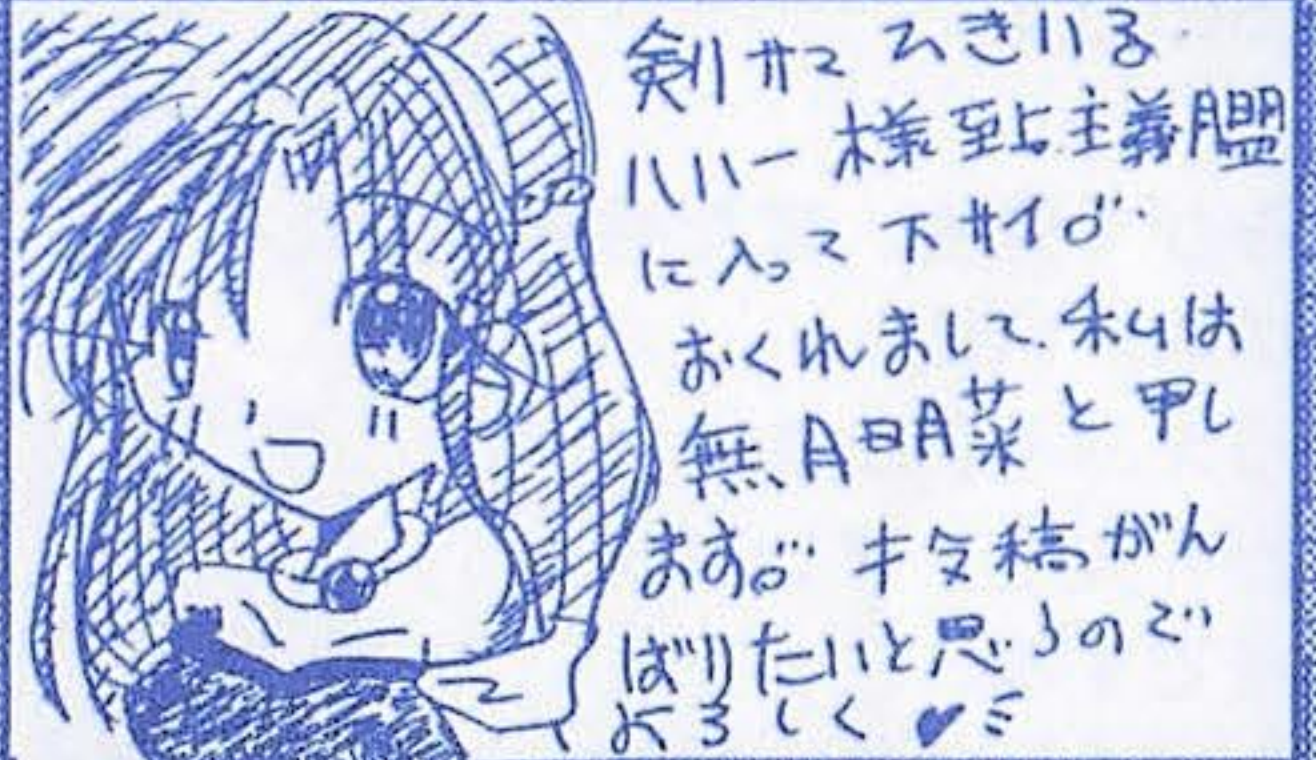 剣サマ ひきいる
ハハー 様至上主義同盟
に入って下サイ♂
おくれまして、私は
無月明菜と申し
ます♂ 投稿がん
ばりたいと思うので
よろしく♥ミ